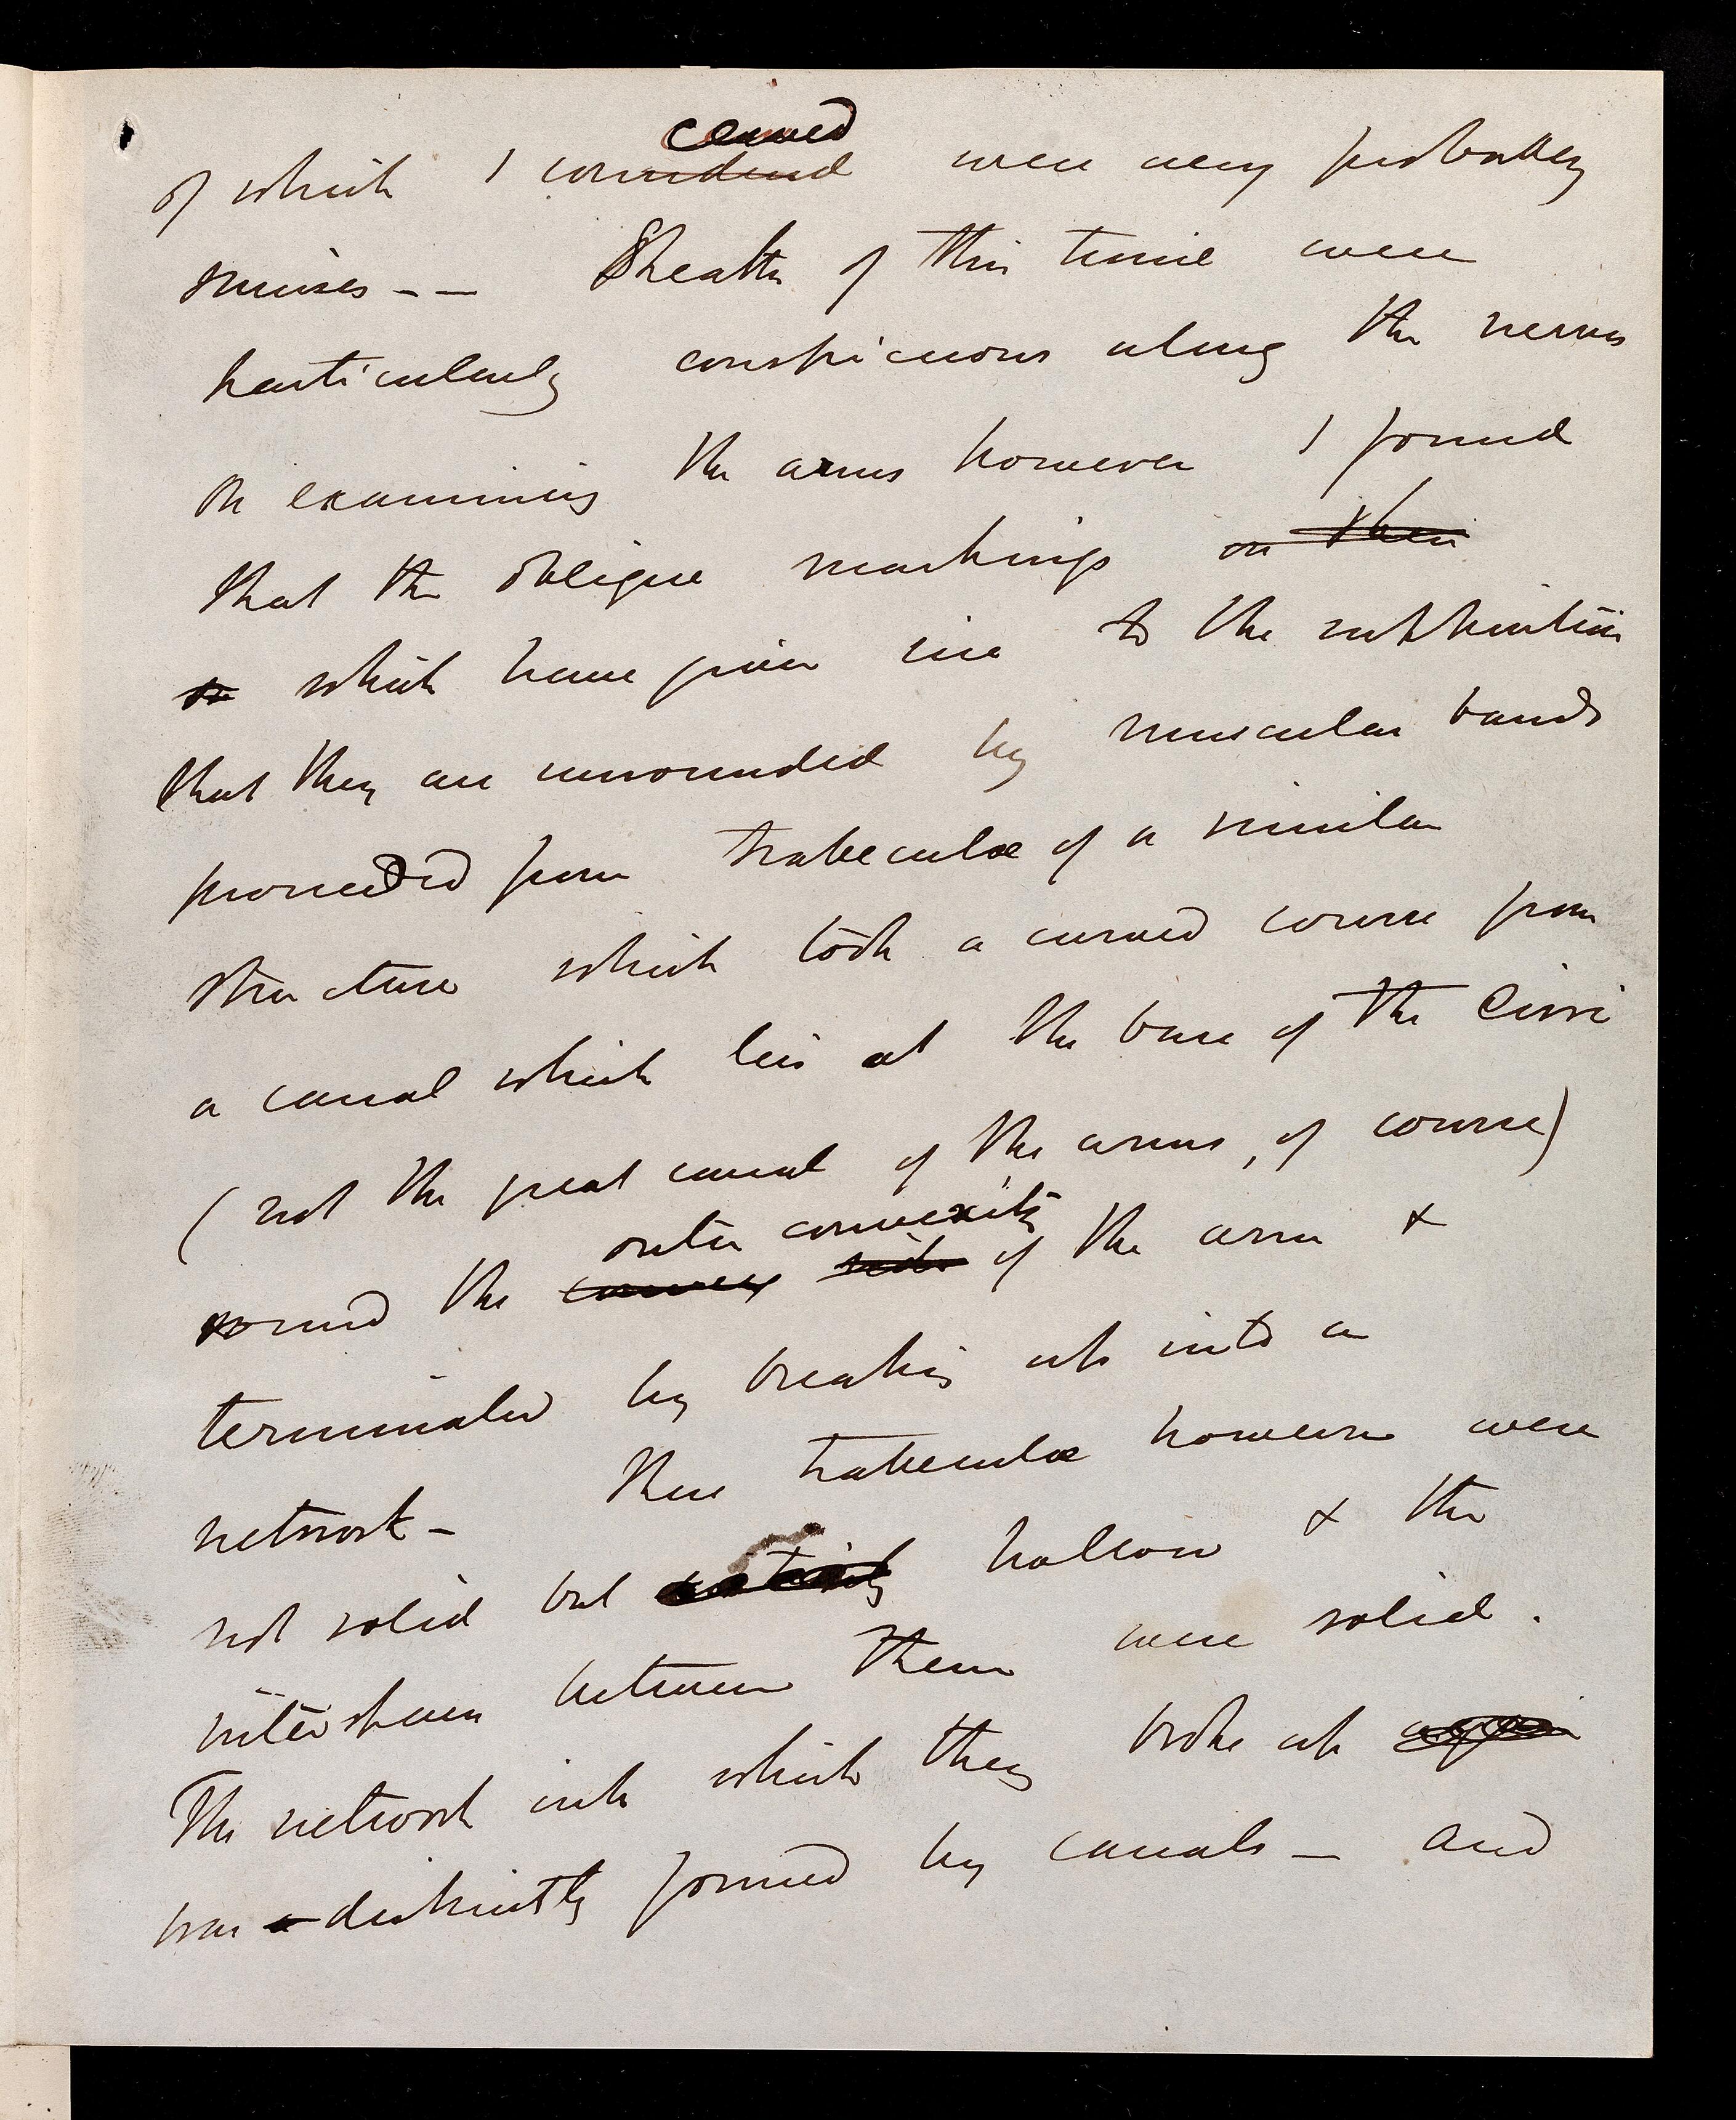 ceived
of which I considered were very probably
sinuses - - Sheaths of this tissue were
particularly conspicuous along the nerves
On examining the arms however I found
that the oblique markings on their
to which have given rise to the supposition
that they are surrounded by muscular bands
proceeded from trabeculæ of a similar
structure which took a curved course from
a canal which lies at the base of the Cirri
(not the great canal of the arms, of course)
outer convexity
round the convex side of the arm &
terminated by breaking up into a
network - These trabeculæ however were
not solid but hollow & the
interspaces between them were solid.
The network into which they broke up again
was a distinctly formed by canals - and